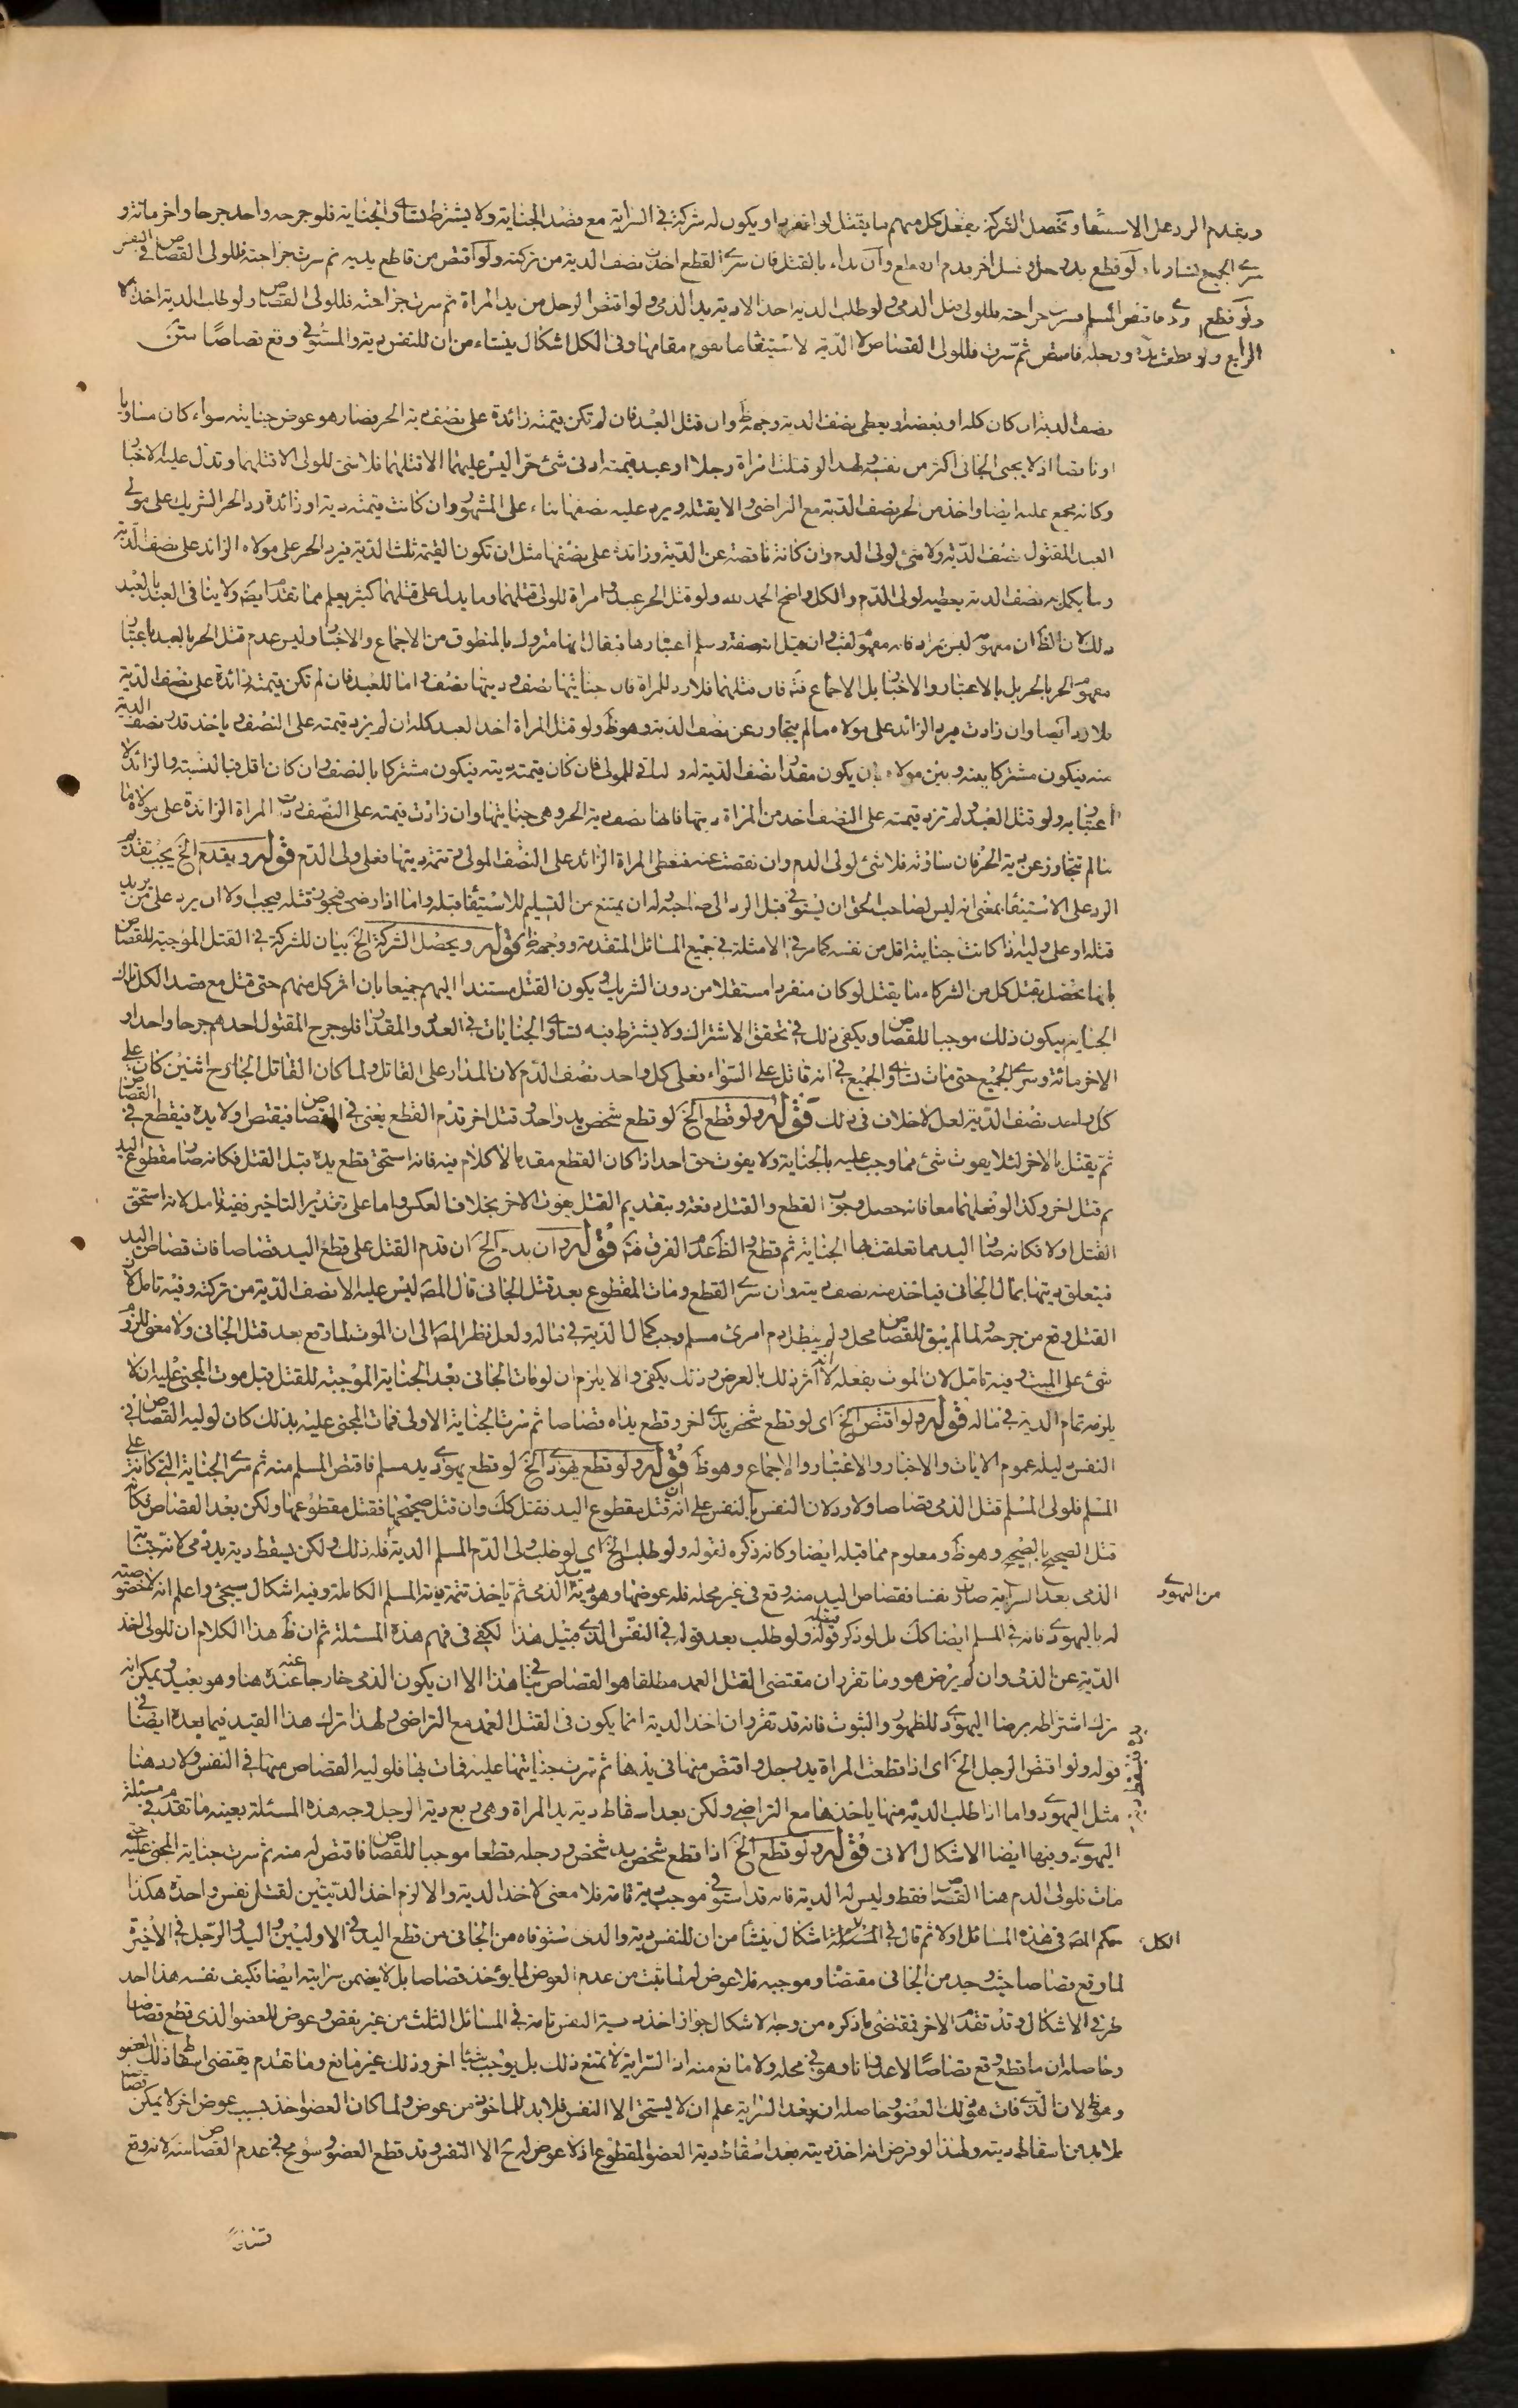 ويقدم الرد على الاستيفاء وتحصل الشركة بفعل كل منهم ما يقتل لو انفرد او يكون له شركة في السراية مع قصد الجناية ولا يشترط تساوي الجناية فلو جرحه واحد جرحا واخر مائة و
سرى الجميع تساويا ولو قطع يد رجل وقتل اخر قدم القطع وان بداء بالقتل فان سرى القطع اخذ نصف الدية من تركته ولو اقتص من قاطع يديه ثم سرت جراحته فللولي القصاص في النفس
ولو قطع يهودي فاقتص المسلم وسرت جراحته فللولي قتل الذمي ولو طلب الدية اخذ الا دية يد الذمي ولو اقتص الرجل من يد المراة ثم سرت جراحته فللولي القصاص ولو طلب الدية اخذ الا
الرابع ولو قطعت يده ورجله فاقتص ثم سرت فللولي القصاص لا الدية لاستيفاء ما يقوم مقامها وفي الكل اشكال ينشاء من ان للنفس دية والمستوفى وقع قصاصا ستر
نصف الدية ان كان كله او بعضه او يعطي نصف الدية وجهه ظ وان قتل العبد فان لم تكن قيمته زائدة على نصف دية الحر فصار هو عوض جنايته سواء كان مساويا
او ناقصا اذ لا يجنى الجاني اكثر من نفسه ولهذا لو قتلت امراة رجلا او عبد قيمته ادنى شئ حرا ليس عليهما الا قتلهما فلا شئ للولي الا قتلهما وتدل عليه الاخبار
وكانه مجمع عليه ايضا واخذ من الحر نصف الدية مع التراضي والا يقتله ويرد عليه نصفها بناء على المشهور وان كانت قيمته دية او زائدة رد الحر الشريك على مولى
العبد المقتول نصف الدية ولا شئ لولي الدم وان كانت ناقصة عن الدية وزائدة على نصفها مثل ان تكون القيمة ثلث الدية فيرد الحر على مولاه الزائد على نصف الدية
وما يكمل به نصف الدية يعطيه لولي الدم والكل واضح الحمد لله ولو قتل الحر عبد وامراة للولي قتلهما وما يدل على قتلهما كثير يعلم مما تقدم ايضا ولا ينافي العبد بالعبد
ذلك لان الظ ان مفهومه ليس بمراد فانه مفهوم لقب وان قيل انه صفة وسلم اعتبارها فيقال انها متروك بالمنطوق من الاجماع والاخبار وليس عدم قتل الحر بالعبد باعتبار
مفهوم الحر بالحر بل بالاعتبار والاخبار بل الاجماع فتم فان قتلهما فلا رد للمراة فان جنايتها نصف وديتها نصف واما للعبد فان لم تكن قيمته زائدة على نصف الدية
فلا رد ايضا وان زادت فيرد الزائد على مولاه ما لم يتجاوز عن نصف الدية وهو ظ ولو قتل المراة اخذ العبد كله ان لم يزد قيمته على النصف وياخذ قدر نصف الدية
منه فيكون مشتركا بينه وبين مولاه بان يكون مقدار نصف الدية له والباقي للمولى فان كان قيمته دية فيكون مشتركا بالنصف وان كان اقل فبالنسبة والزائد لا
اعتبار به ولو قتل العبد ولم تزد قيمته على النصف اخذ من المراة ديتها فانها نصف دية الحر وهي جنايتها وان زادت قيمته على النصف ردت المراة الزائدة على مولاه ما
ما لم تتجاوز عن دية الحر فان ساوته فلا شئ لولي الدم وان نقصت عنه فتعطي المراة الزائد على النصف المولى وتتمة ديتها فعلى ولي الدم قوله ويقدم الخ يجب تقديم
الرد على الاستيفاء بمعنى انه ليس لصاحب الحق ان يستوفي قبل الرد الى صاحبه وله ان يمتنع من التسليم للاستيفاء قبله واما اذا رضي فيجوز قتله ويجب اولا ان يرد على من يريد
قتله او على وليه اذا كانت جنايته اقل من نفسه كما مر في الامثلة في جميع المسائل المتقدمة ووجهه ظ قوله ويحصل الشركة الخ بيان للشركة في القتل الموجبة للقصاص
بانها تحصل بقتل كل من الشركاء ما يقتل لو كان منفردا مستقلا من دون الشريك ويكون القتل مستندا اليهم جميعا بان اثر كل منهم حتى قتل مع قصد الكل تلك
الجناية فيكون ذلك موجبا للقصاص ويكفي ذلك في تحقق الاشتراك ولا يشترط فيه تساوي الجنايات في العدد والمقدار فلو جرح المقتول احدهم جرحا واحدا و
الاخر مائة وسرى الجميع حتى مات تساوى الجميع في انه قاتل على السواء فعلى كل واحد نصف الدم لان المدار على القاتل ولما كان القاتل الجارح اثنين كان على
كل واحد نصف الدية لعل لا خلاف في ذلك قوله ولو قطع الخ لو قطع شخص يد واحد وقتل اخر قدم القطع يعني في القصاص فيقتص اولا يده فيقطع في القصاص
ثم يقتل بالاخر لئلا يفوت شئ مما وجب عليه بالجناية ولا يفوت حق احد اذا كان القطع مقدما لا كلام فيه فانه استحق قطع يده قبل القتل فكانه صار مقطوع اليد
ثم قتل اخر وكذا لو فعلهما معا فانه حصل وجوب القطع والقتل دفعة وبتقديم القتل يفوت الاخر بخلاف العكس واما على تقدير التاخير ففيه تامل لانه استحق
القتل اولا فكانه صار اليد مما تعلقت بها الجناية ثم قطع والظ عدم الفرق فتم قوله وان بدء الخ ان قدم القتل على قطع اليد قصاصا فات قصاص اليد
فيتعلق ديتها بمال الجاني فياخذ منه نصف دية وان سرى القطع ومات المقطوع بعد قتل الجاني قال المص ليس عليه الا نصف الدية من تركته وفيه تامل لان
القتل وقع من جرحه ولما لم يبق للقصاص محل ولم يبطل دم امرئ مسلم وجب كمال الدية في ماله ولعل نظر المص الى ان الموت لما وقع بعد قتل الجاني ولا معنى للزوم
شئ على الميت وفيه تامل لان الموت بفعله لانه اثر ذلك بالعرض وذلك يكفي والا يلزم ان لو مات الجاني بعد الجناية الموجبة للقتل وقبل موت المجني عليه ان لا
يلزمه تمام الدية في ماله قوله ولو اقتص الخ اي لو قطع شخص يدي اخر وقطع يداه قصاصا ثم سرت الجناية الاولى فمات المجني عليه بذلك كان لوليه القصاص في
النفس دليله عموم الايات والاخبار والاعتبار والاجماع وهو ظ قوله ولو قطع يهودي الخ لو قطع يهودي يد مسلم فاقتص المسلم منه ثم سرى الجناية التي كانت على
المسلم فلولي المسلم قتل الذمي قصاصا ولا رد لان النفس بالنفس على انه ان قتل مقطوع اليد فقتل كك وان قتل صحيحها فقتل مقطوعها ولكن بعد القصاص فكانه
قتل الصحيح بالصحيح وهو ظ ومعلوم مما قبله ايضا وكانه ذكره لقوله ولو طلب الخ اي لو طلب ولي الدم المسلم الدية فله ذلك ولكن يسقط دية يد ذمي لانه جناية
الذمي بعد السراية صارت نفسا فقصاص اليد منه وقع في غير محله فله عوضها وهو دية يد الذمي ثم ياخذ تتمة دية المسلم الكاملة وفيه اشكال سيجئ واعلم انه لا خصوصية
من اليهودي
له باليهودي فانه في المسلم ايضا كك بل لو ذكر قوله ولو طلب بعد قوله في النفس الذي قبيل هذا لكفى في فهم هذه المسئلة ثم ان ظ هذا الكلام ان للولي اخذ
الدية عن الذمي وان لم يرض هو وما تقرر ان مقتضى القتل العمد مطلقا هو القصاص ينافي هذا الا ان يكون الذمي خارجا عنه عنده هنا وهو بعيد ويمكن انه
ترك اشتراطه برضا اليهودي للظهور والثبوت فانه قد تقرر ان اخذ الدية انما يكون في القتل العمد مع التراضي ولهذا ترك هذا القيد فيما بعده ايضا في
قوله ولو اقتص الرجل الخ اي اذا قطعت المراة يد رجل واقتص منها في يدها ثم سرت جنايتها عليه فمات بها فلوليه القصاص منها في النفس ولا رد هنا
مثل اليهودي واما اذا طلب الدية منها ياخذها مع التراضي ولكن بعد اسقاط دية يد المراة وهي ربع دية الرجل وجه هذه المسئلة بعينه ما تقدم في مسئلة
اليهودي وفيها ايضا الاشكال الاتي قوله ولو قطع الخ اذا قطع شخص يد شخص ورجله قطعا موجبا للقصاص فاقتص له منه ثم سرت جناية المجني عليه حتى
مات فلولي الدم هنا القصاص فقط وليس له الدية فانه قد استوفى موجب دية تامة فلا معنى لاخذ الدية والا لزم اخذ الديتين لقتل نفس واحدة هكذا
حكم المص في هذه المسائل اولا ثم قال في المسئلة اشكال ينشأ من ان للنفس دية والذي استوفاه من الجاني من قطع اليد في الاوليين واليد والرجل في الاخيرة
الكل
لما وقع قصاصا حيث وجد من الجاني مقتضاه وموجبه فلا عوض له لما ثبت من عدم العوض لما يؤخذ قصاصا بل لا يضمن سرايته ايضا فكيف نفسه هذا احد
طرفي الاشكال وقد تقدم الاخر فمقتضى ما ذكره من وجه الاشكال جواز اخذ دية النفس تامة في المسائل الثلث من غير نقص وعوض للعضو الذي قطع قصاصا
وحاصله ان ما قطع وقع قصاصا لا عدوانا وهو في محله ولا مانع منه اذ السراية لا تمنع ذلك بل يوجب شيئا اخر وذلك غير مانع وما تقدم يقتضي اسقاط ذلك العضو
وهو ظ لان الذي فات هو ذلك العضو وحاصله ان بعد السراية علم ان لا يستحق الا النفس فلا بد للماخوذ من عوض ولما كان العضو اخذ بسبب عوض اخر لا يمكن قصاصا
فلا بد من اسقاط ديته ولهذا لو فرض انه اخذ ديته بعد اسقاط دية العضو المقطوع اذ لا عوض له ح الا النفس وقد قطع العضو وسومح في عدم القصاص منه لانه وقع